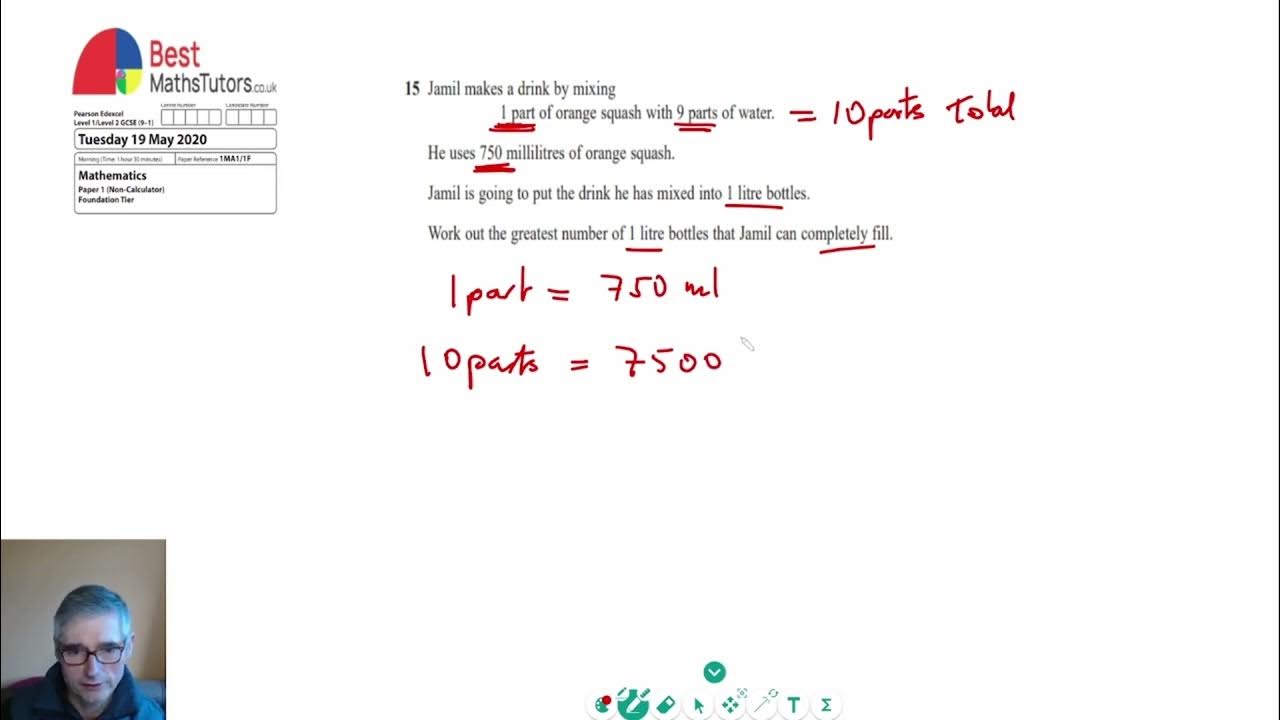 Best
MathsTutors.co.uk
Centre Number Candidate Number
Pearson Edexcel
Level 1/Level 2 GCSE (9–1)
Tuesday 19 May 2020
Morning (Time: 1 hour 30 minutes) Paper Reference 1MA1/1F
Mathematics
Paper 1 (Non-Calculator)
Foundation Tier
15 Jamil makes a drink by mixing
1 part of orange squash with 9 parts of water. = 10 parts Total
He uses 750 millilitres of orange squash.
Jamil is going to put the drink he has mixed into 1 litre bottles.
Work out the greatest number of 1 litre bottles that Jamil can completely fill.
1 part = 750 ml
10 parts = 7500
T Σ